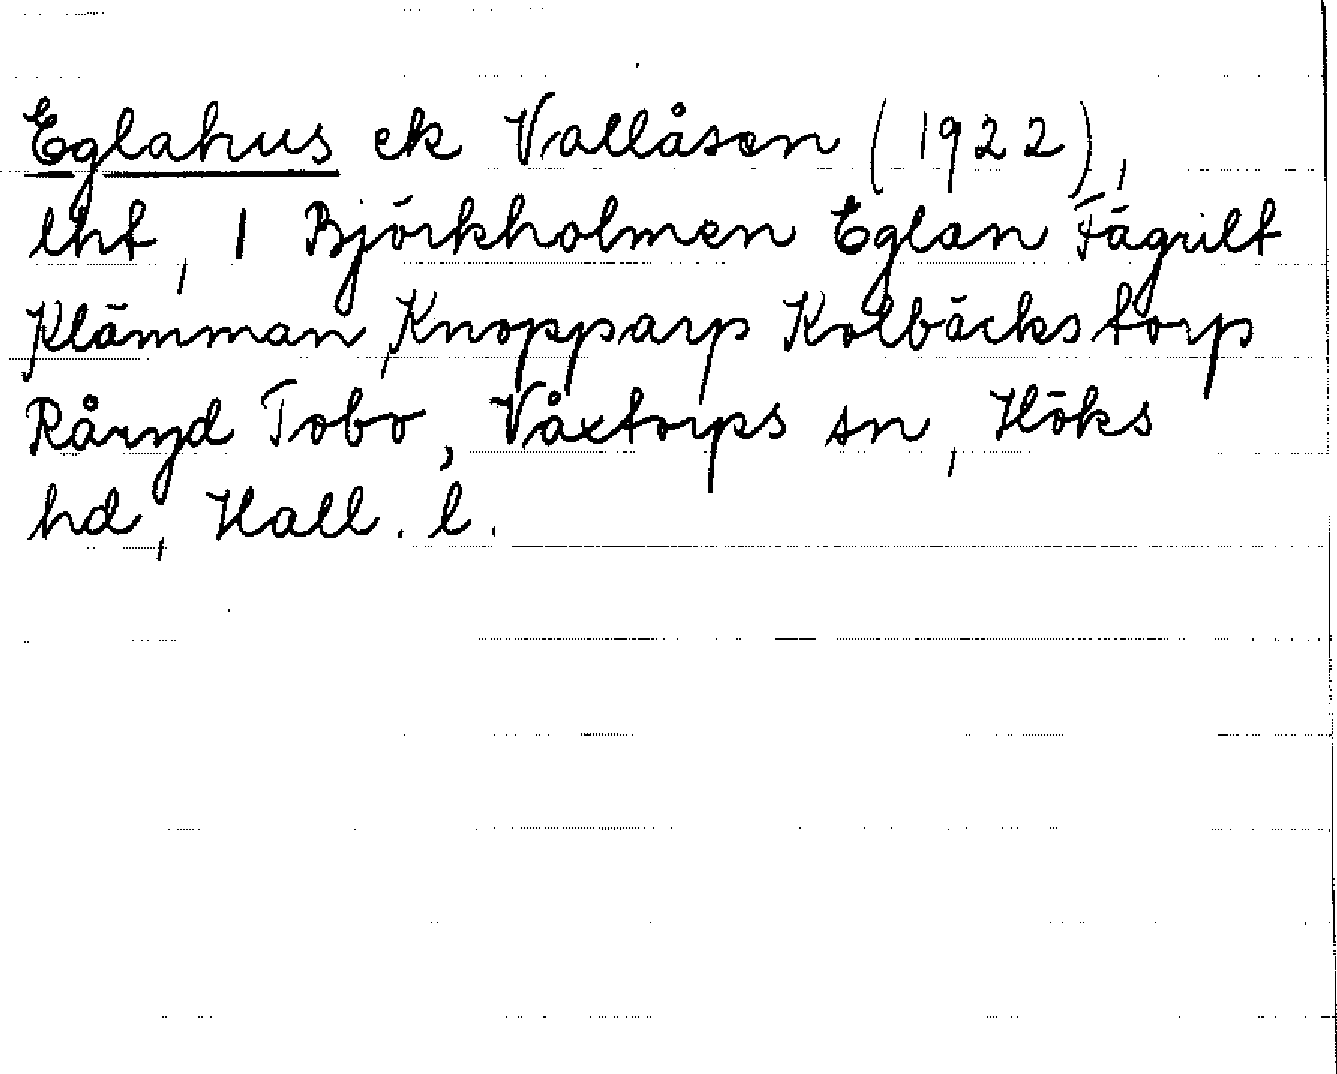 Eglahus ek Vallåsen (1922),
lht, 1 Björkholmen Eglan Fägrilt
Klämman, Knopparp Kolbäckstorp
Råryd Tobo, Våxtorps sn, Höks
hd, Hall. l.